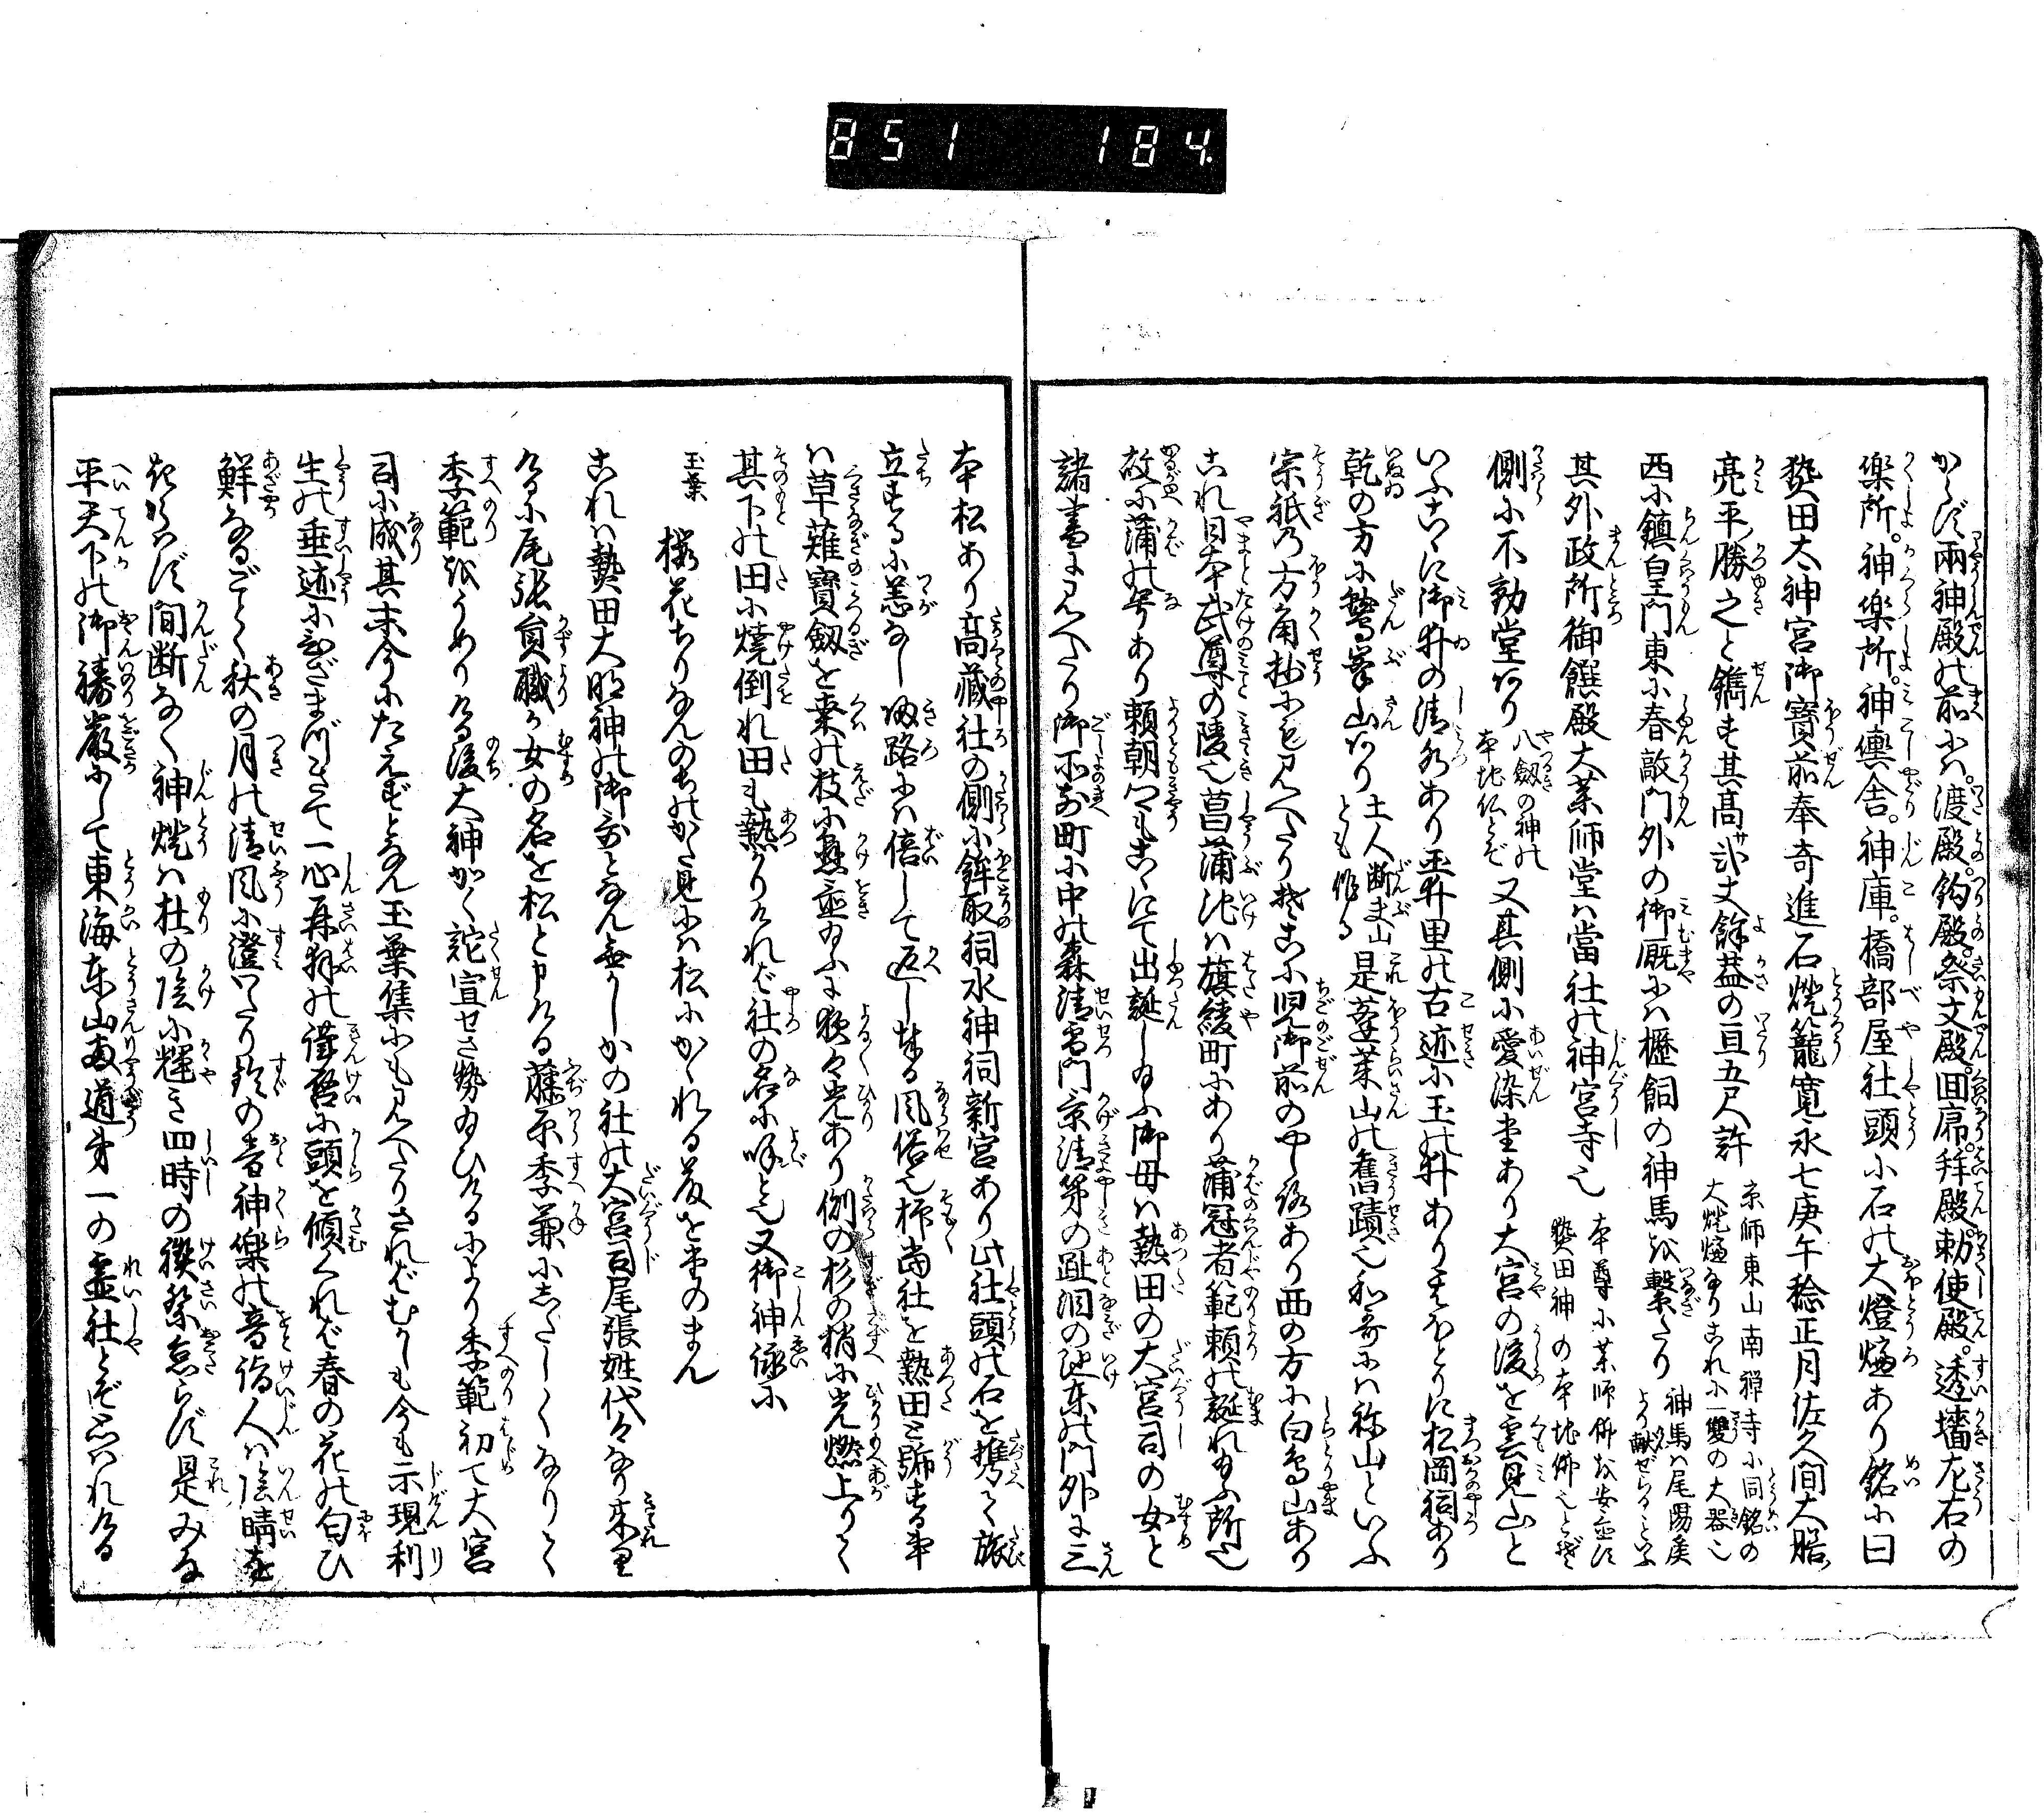 851 184.
からず兩神殿の前には。渡殿。釣殿。祭文殿。囬廊。拜殿。勅使殿。透墻左右の
楽所。神楽所。神輿舎。神庫。橋部屋社頭に石の大燈爐あり銘に曰
熱田太神宮御寳前奉奇進石燈籠寛永七庚午稔正月佐久間大膳
亮平勝之と鐫す其高サ弐丈餘蓋の亘五尺許
京師東山南禅寺に同銘の
大燈爐ありこれに一雙の大器也
西に鎮皇門東に春敲門外の御厩には櫪飼の神馬を繋たり
神馬は尾陽矦
より献ぜらるゝといふ
其外政所御饌殿大薬師堂は當社の神宮寺也
本尊に薬師佛を安置す
熱田神の本地佛也とぞ
側に不動堂あり
八劔の神の
本地仏とぞ
又其側に愛染堂あり大宮の後を雲見山と
いふこゝに御井の清水あり玉井里の古迹に玉の井ありそのほとりに松岡祠あり
乾の方に鷲峯山あり
土人断夫山
とも作る
是蓬莱山の舊蹟也和哥には祢山といふ
宗祇の方角抄にも見へたり其こに児御前のやしろあり西の方に白鳥山あり
これ日本武尊の陵也菖蒲池は旗綾町にあり蒲冠者範頼の誕れ給ふ所也
故に蒲の号あり頼朝公もこゝにて出誕し給ふ御母は熱田の大宮司の女と
諸書に見へたり御所前町に中の森清雪門景清第の趾泪の池東の門外に三
本松あり高藏社の側に鉾取祠水神祠新宮あり此社頭の石を携て旅
立するに恙なし皈路には倍して返し奉る風俗也抑當社を熱田と號する事
は草薙寳劔を桑の枝に懸置給ふに夜々光あり側の杉の梢に光燃上りて
其下の田に焼倒れ田も熱かりければ社の名に呼と也又御神詠に
玉葉
櫻花ちりなんのちのかた見には松にかゝれる藤をたのまん
これは熱田大明神の御哥となん昔しかの社の大宮司尾張姓代々なり来里
けるに尾張員職が女の名を松と申ける藤原季兼にしたしくなりて
季範をうめりける後大神かく詫宣せさせ給ひけるにより季範初て大宮
司に成其末今にたえずとなん玉葉集にも見へたりさればむかしも今も示現利
生の垂迹にひざまづきて一心再拜の謹啓に頭を傾くれば春の花の匂ひ
鮮なるごとく秋の月の清風に澄わたり鈴の音神樂の音詣人は陰晴を
分かず間断なく神燈は杜の陰に輝き四時の禊祭怠らず是みな
平天下の御祷厳にして東海東山両道第一の霊社とぞ思はれける